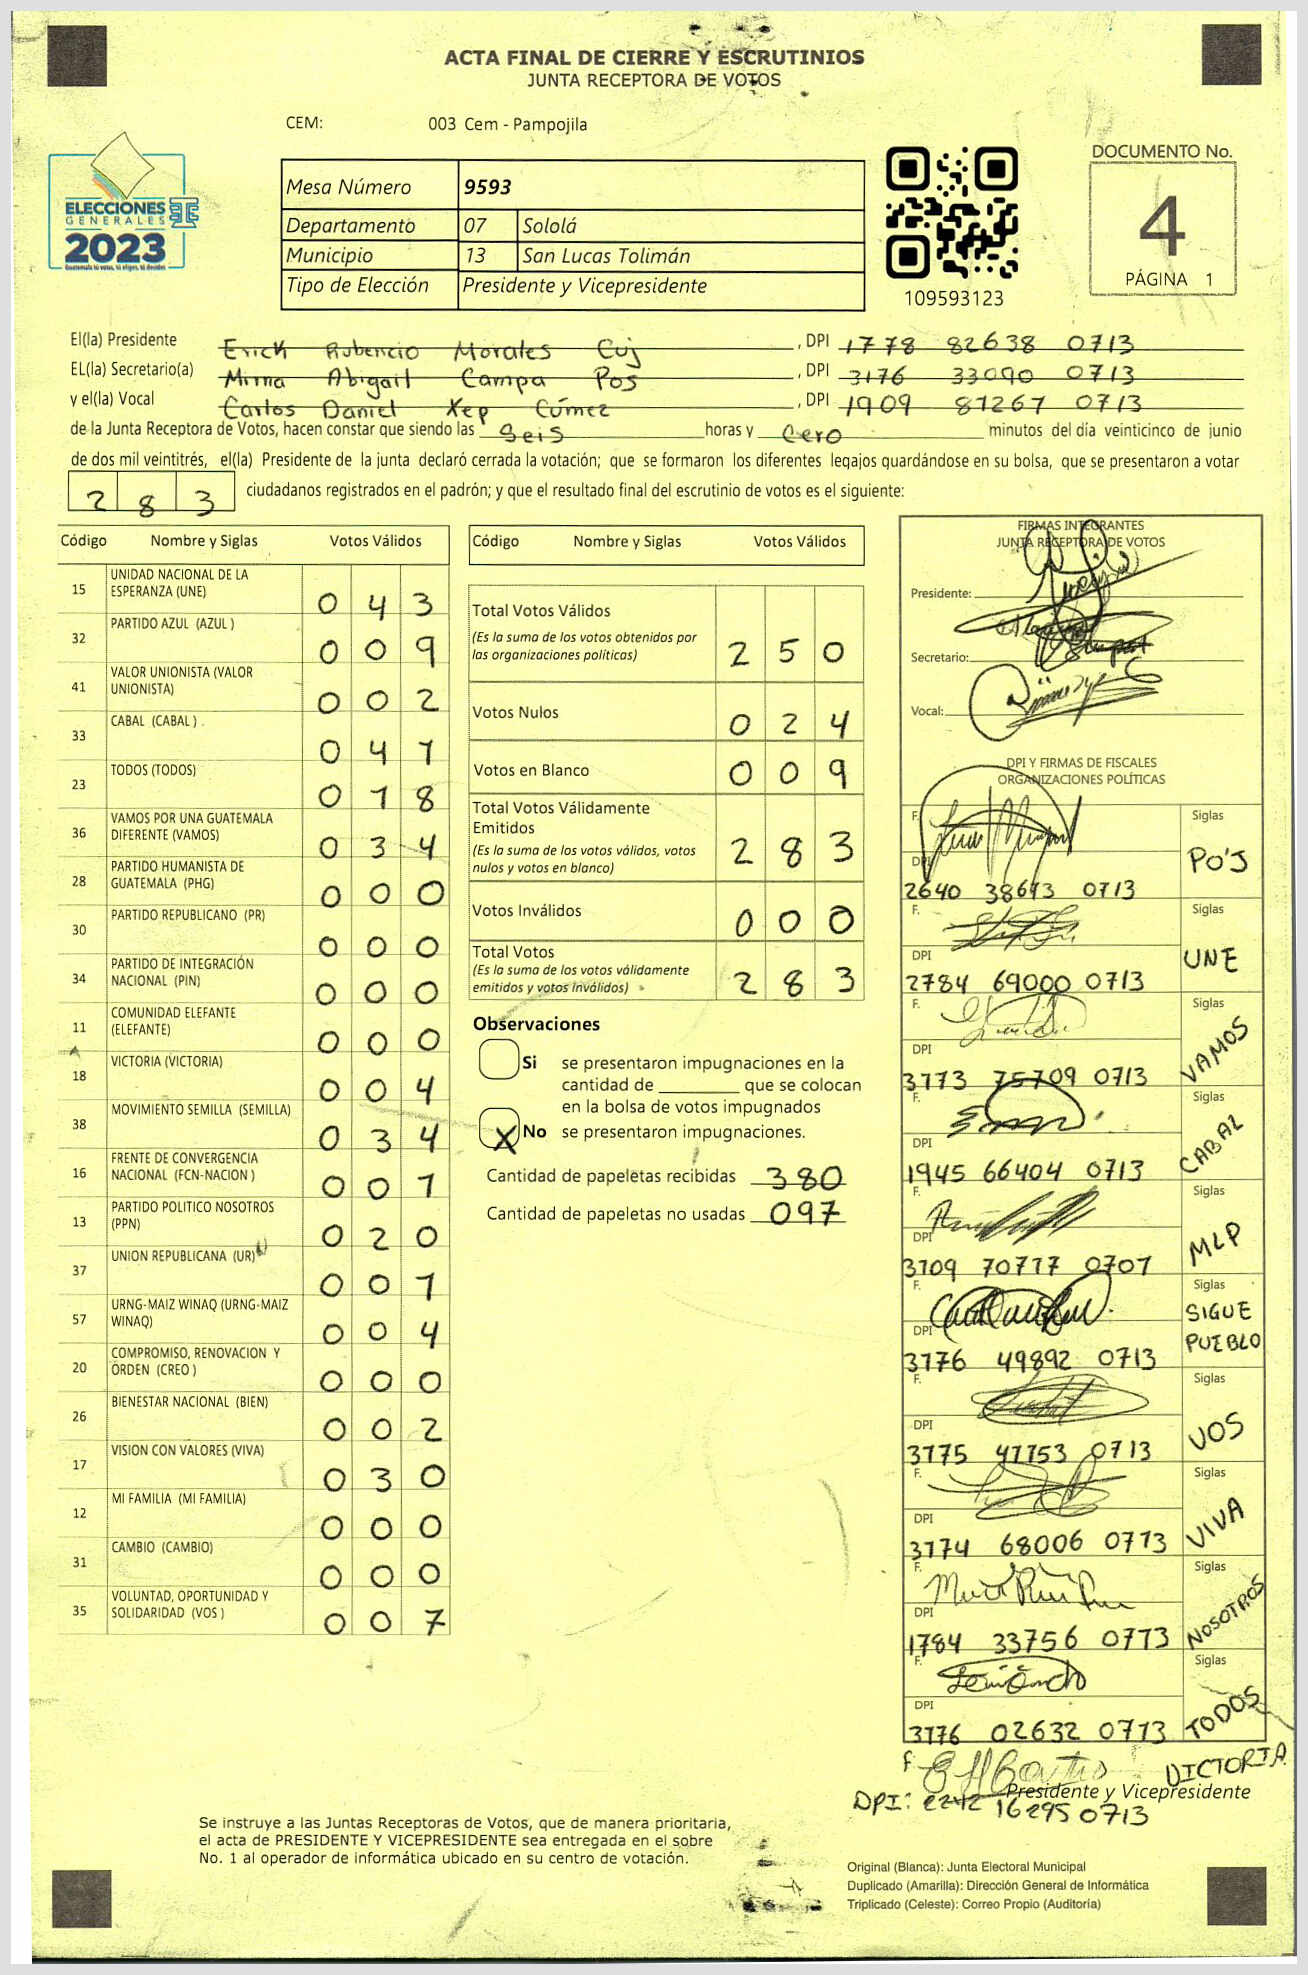 ACTA FINAL DE CIERRE Y ESCRUTINIOS
JUNTA RECEPTORA DE VOTOS
CEM: 003 Cem - Pampojila
ELECCIONES
GENERALES
2023
Guatemala tú votas, tú eliges, tú decides
Mesa Número 9593
Departamento 07 Sololá
Municipio 13 San Lucas Tolimán
Tipo de Elección Presidente y Vicepresidente
109593123
DOCUMENTO No.
4
PÁGINA 1
El(la) Presidente Erick Rubencio Morales Cuj , DPI 1778 82638 0713
EL(la) Secretario(a) Mirna Abigail Campa Pos , DPI 3176 33090 0713
y el(la) Vocal Carlos Daniel Xep Cúmez , DPI 1909 87267 0713
de la Junta Receptora de Votos, hacen constar que siendo las seis horas y cero minutos del día veinticinco de junio
de dos mil veintitrés, el(la) Presidente de la junta declaró cerrada la votación; que se formaron los diferentes legajos guardándose en su bolsa, que se presentaron a votar
283 ciudadanos registrados en el padrón; y que el resultado final del escrutinio de votos es el siguiente:
Código Nombre y Siglas Votos Válidos
15 UNIDAD NACIONAL DE LA ESPERANZA (UNE) 0 4 3
32 PARTIDO AZUL (AZUL ) 0 0 9
41 VALOR UNIONISTA (VALOR UNIONISTA) 0 0 2
33 CABAL (CABAL ) 0 4 1
23 TODOS (TODOS) 0 1 8
36 VAMOS POR UNA GUATEMALA DIFERENTE (VAMOS) 0 3 4
28 PARTIDO HUMANISTA DE GUATEMALA (PHG) 0 0 0
30 PARTIDO REPUBLICANO (PR) 0 0 0
34 PARTIDO DE INTEGRACIÓN NACIONAL (PIN) 0 0 0
11 COMUNIDAD ELEFANTE (ELEFANTE) 0 0 0
18 VICTORIA (VICTORIA) 0 0 4
38 MOVIMIENTO SEMILLA (SEMILLA) 0 3 4
16 FRENTE DE CONVERGENCIA NACIONAL (FCN-NACION ) 0 0 1
13 PARTIDO POLITICO NOSOTROS (PPN) 0 2 0
37 UNION REPUBLICANA (UR) 0 0 1
57 URNG-MAIZ WINAQ (URNG-MAIZ WINAQ) 0 0 4
20 COMPROMISO, RENOVACION Y ORDEN (CREO ) 0 0 0
26 BIENESTAR NACIONAL (BIEN) 0 0 2
17 VISION CON VALORES (VIVA) 0 3 0
12 MI FAMILIA (MI FAMILIA) 0 0 0
31 CAMBIO (CAMBIO) 0 0 0
35 VOLUNTAD, OPORTUNIDAD Y SOLIDARIDAD (VOS ) 0 0 7
Código Nombre y Siglas Votos Válidos
Total Votos Válidos 2 5 0
(Es la suma de los votos obtenidos por
las organizaciones politicas)
Votos Nulos 0 2 4
Votos en Blanco 0 0 9
Total Votos Válidamente
Emitidos 2 8 3
(Es la suma de los votos válidos, votos
nulos y votos en blanco)
Votos Inválidos 0 0 0
Total Votos 2 8 3
(Es la suma de los votos válidamente
emitidos y votos Inválidos)
Observaciones
Si se presentaron impugnaciones en la
cantidad de ________ que se colocan
en la bolsa de votos impugnados
X No se presentaron impugnaciones.
Cantidad de papeletas recibidas 380
Cantidad de papeletas no usadas 097
FIRMAS INTEGRANTES
JUNTA RECEPTORA DE VOTOS
Presidente:
Secretario:
Vocal:
DPI Y FIRMAS DE FISCALES
ORGANIZACIONES POLÍTICAS
F. Siglas
DPI PO'J
2640 38613 0713
F. Siglas
DPI UNE
2784 69000 0713
F. Siglas
DPI VAMOS
3173 75709 0713
F. Siglas
DPI CABAL
1945 66404 0713
F. Siglas
DPI MLP
3109 70717 0701
F. Siglas
DPI SIGUE PUEBLO
3176 49892 0713
F. Siglas
DPI VOS
3175 41753 0713
F. Siglas
DPI VIVA
3174 68006 0713
F. Siglas
DPI NOSOTROS
1784 33756 0713
F. Siglas
DPI TODOS
3176 02632 0713
F VICTORIA
Presidente y Vicepresidente
DPI: 2242 16295 0713
Se instruye a las Juntas Receptoras de Votos, que de manera prioritaria,
el acta de PRESIDENTE Y VICEPRESIDENTE sea entregada en el sobre
No. 1 al operador de informática ubicado en su centro de votación.
Original (Blanca): Junta Electoral Municipal
Duplicado (Amarilla): Dirección General de Informática
Triplicado (Celeste): Correo Propio (Auditoría)